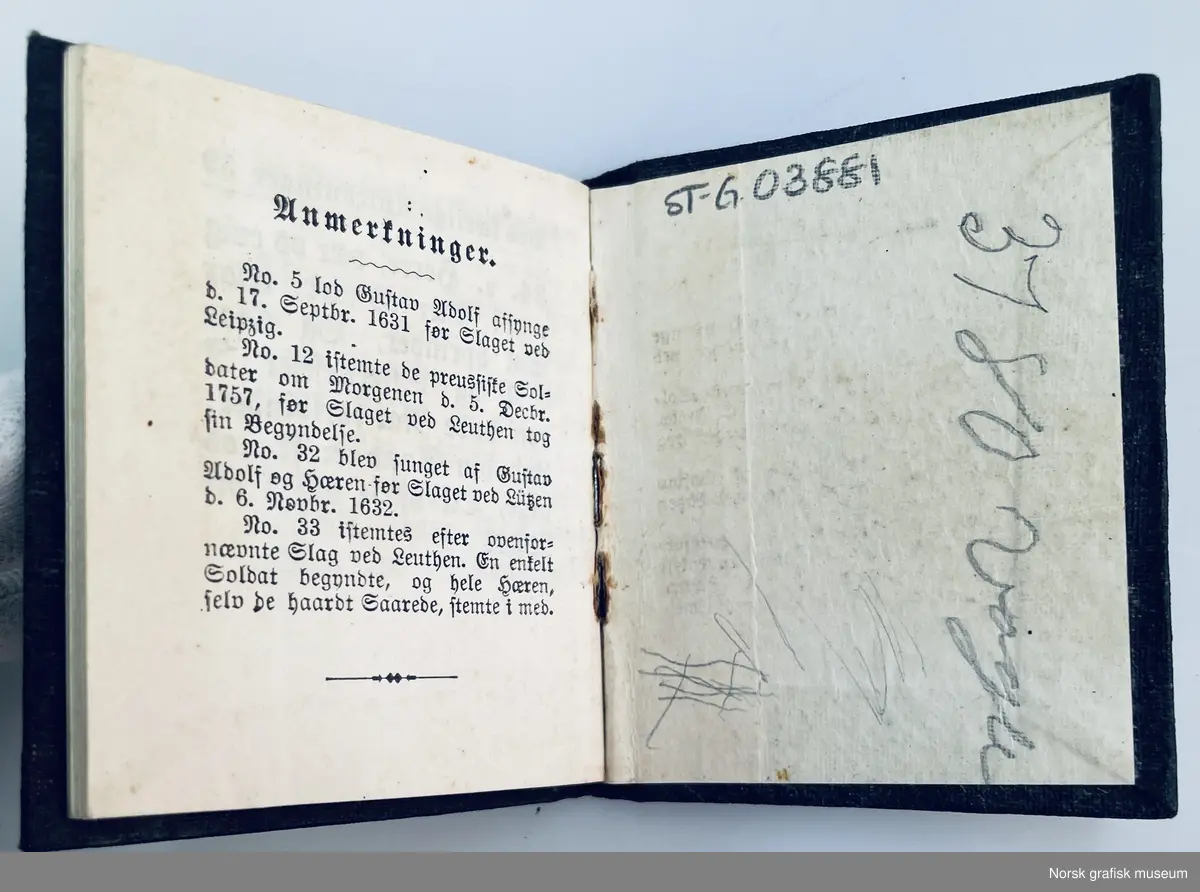 Anmerkninger.
No. 5 lod Gustav Adolf afsynge
d. 17. Septbr. 1631 før Slaget ved
Leipzig.
No. 12 istemte de preussiske Sol-
dater om Morgenen d. 5. Decbr.
1757, før Slaget ved Leuthen tog
sin Begyndelse.
No. 32 blev sunget af Gustav
Adolf og Hæren før Slaget ved Lützen
d. 6. Novbr. 1632.
No. 33 istemtes efter ovenfor-
nævnte Slag ved Leuthen. En enkelt
Soldat begyndte, og hele Hæren,
selv de haardt Saarede, stemte i med.
ST-G.03881
37
Norsk grafisk museum